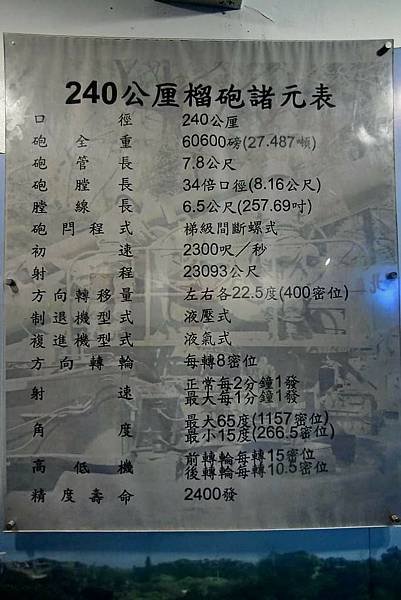 240公厘榴砲諸元表
口徑 240公厘
砲全重 60600磅(27.487噸)
砲管長 7.8公尺
砲膛長 34倍口徑(8.16公尺)
膛線長 6.5公尺(257.69吋)
砲門程式 梯級間斷螺式
初速 2300呎/秒
射程 23093公尺
方向轉移量 左右各22.5度(400密位)
制退機型式 液壓式
複進機型式 液氣式
方向轉輪 每轉8密位
射速 正常每2分鐘1發
最大每1分鐘1發
角度 最大65度(1157密位)
最小15度(266.5密位)
高低機 前轉輪每轉15密位
後轉輪每轉10.5密位
精度壽命 2400發